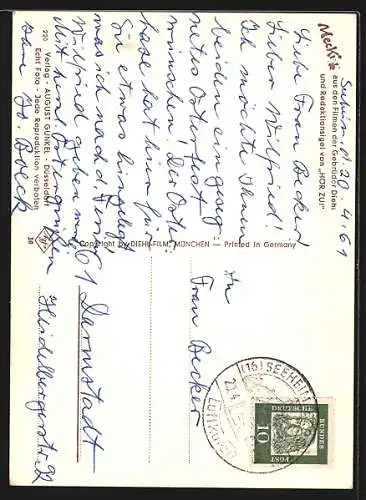 Mecki
aus den Filmen der Gebrüder Diehl
und Redaktionsigel von „HÖR ZU!"
d. 20. 4. 61
Liebe Frau Becker
Lieber Wilfried!
Ich möchte Ihnen
beiden ein
nettes Osterfest
wünschen. Der Oster-
hase hat hier für
Sie etwas hingelegt
was ich nach d. Fest
Wilfried geben werde.
Mit herzl. Ostergrüßen
220 Verlag - AUGUST GUNKEL - Düsseldorf
Echt Foto - Jede Reproduktion verboten
30
Copyright by DIEHL-FILM, MÜNCHEN — Printed in Germany
An
Frau Becker
61 Darmstadt
Heidelbergerstr. 92
(16) SEEHEIM
20.4.
LUFTKURORT
DEUTSCHE
BUNDES
POST
10